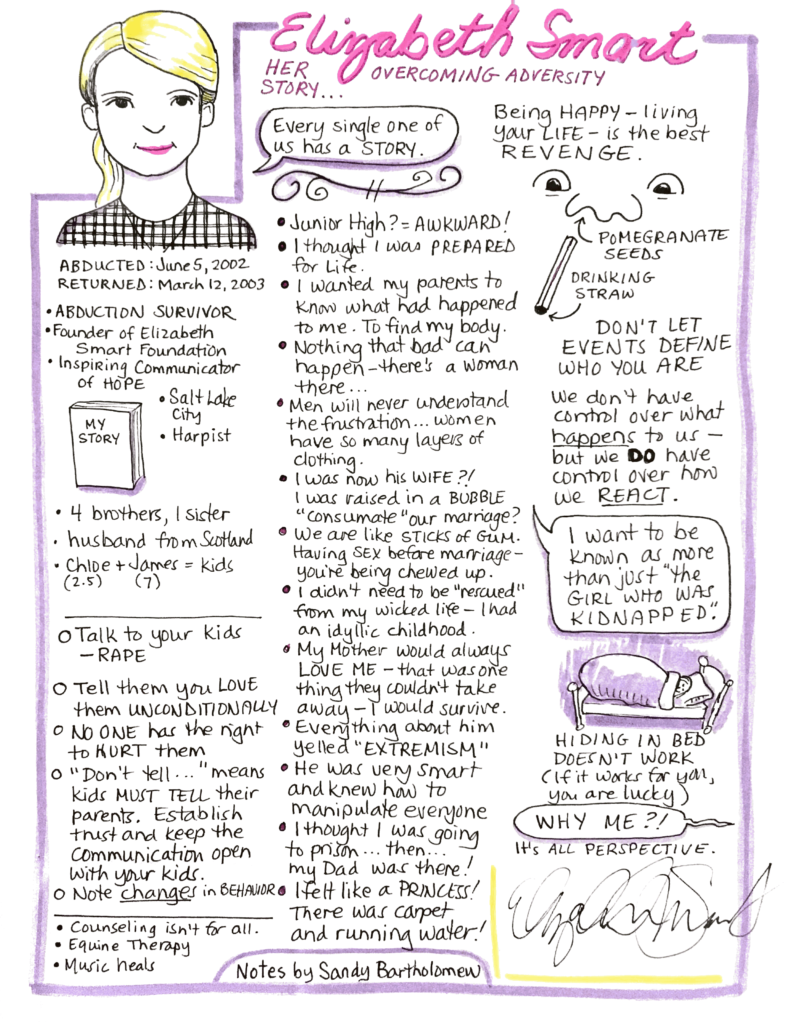 Elizabeth Smart
HER
STORY...
OVERCOMING ADVERSITY
ABDUCTED: June 5, 2002
RETURNED: March 12, 2003
• ABDUCTION SURVIVOR
• Founder of Elizabeth
Smart Foundation
• Inspiring Communicator
of HOPE
MY
STORY
• Salt Lake
City
• Harpist
• 4 brothers, 1 sister
• husband from Scotland
• Chloe + James = kids
(2.5) (7)
O Talk to your kids
– RAPE
O Tell them you LOVE
them UNCONDITIONALLY
O NO ONE has the right
to HURT them
O "Don't tell..." means
kids MUST TELL their
parents. Establish
trust and keep the
communication open
with your kids.
O Note changes in BEHAVIOR
• Counseling isn't for all.
• Equine Therapy
• Music heals
Every single one of
us has a STORY.
• Junior High? = AWKWARD!
• I thought I was PREPARED
for Life.
• I wanted my parents to
know what had happened
to me. To find my body.
• Nothing that bad can
happen – there's a woman
there...
• Men will never understand
the frustration... women
have so many layers of
clothing.
• I was now his WIFE?!
I was raised in a BUBBLE
"consumate" our marriage?
• We are like STICKS OF GUM.
Having SEX before marriage –
you're being chewed up.
• I didn't need to be "rescued"
from my wicked life – I had
an idyllic childhood.
• My Mother would always
LOVE ME – that was one
thing they couldn't take
away – I would survive.
• Everything about him
yelled "EXTREMISM"
• He was very smart
and knew how to
manipulate everyone
• I thought I was going
to prison... then...
my Dad was there!
• I felt like a PRINCESS!
There was carpet
and running water!
Notes by Sandy Bartholomew
Being HAPPY – living
your LIFE – is the best
REVENGE.
POMEGRANATE
SEEDS
DRINKING
STRAW
DON'T LET
EVENTS DEFINE
WHO YOU ARE
We don't have
control over what
happens to us –
but we DO have
control over how
we REACT.
I want to be
known as more
than just "the
GIRL WHO WAS
KIDNAPPED".
HIDING IN BED
DOESN'T WORK
(If it works for you,
you are lucky)
WHY ME?!
It's ALL PERSPECTIVE.
Elizabeth Smart